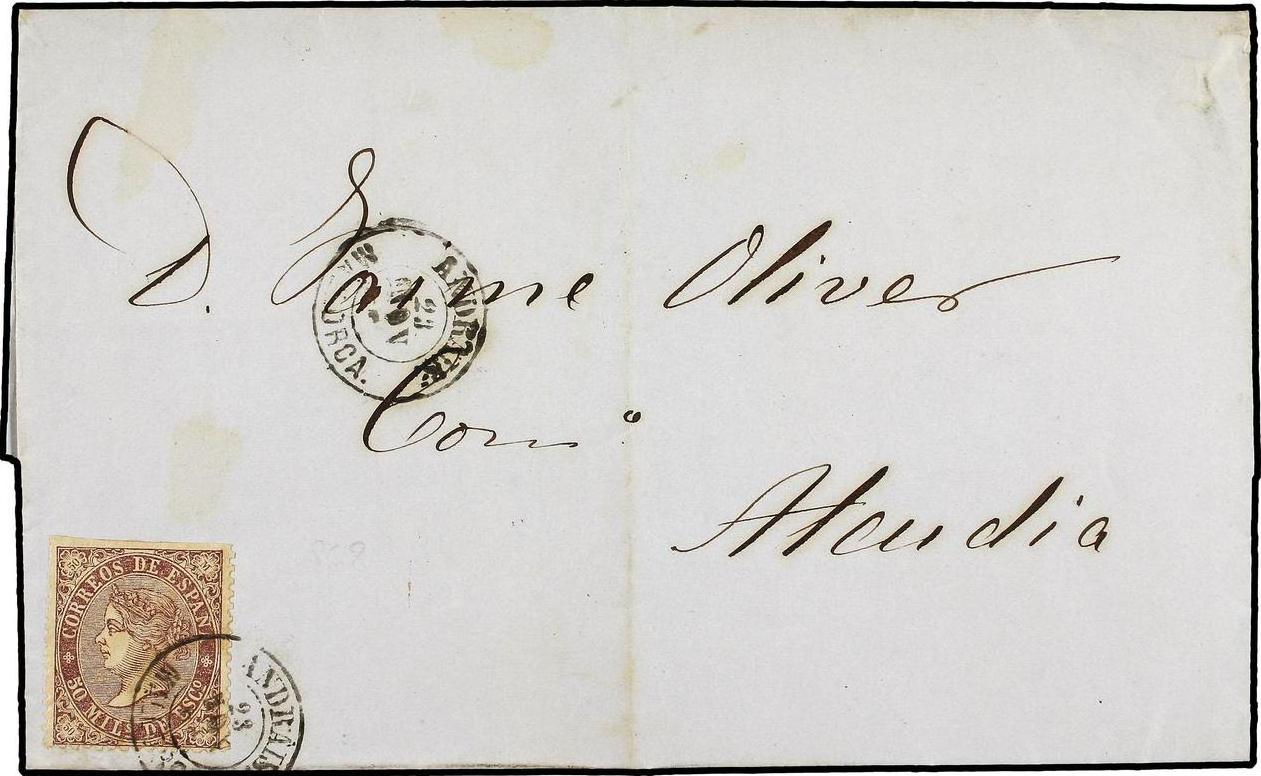 D. Jayme Oliver
Com.º
Alcudia
ANDRAIX
MALLORCA.
CORREOS DE ESPAÑA
50 MILS DE ESCº
ANDRAIX
23